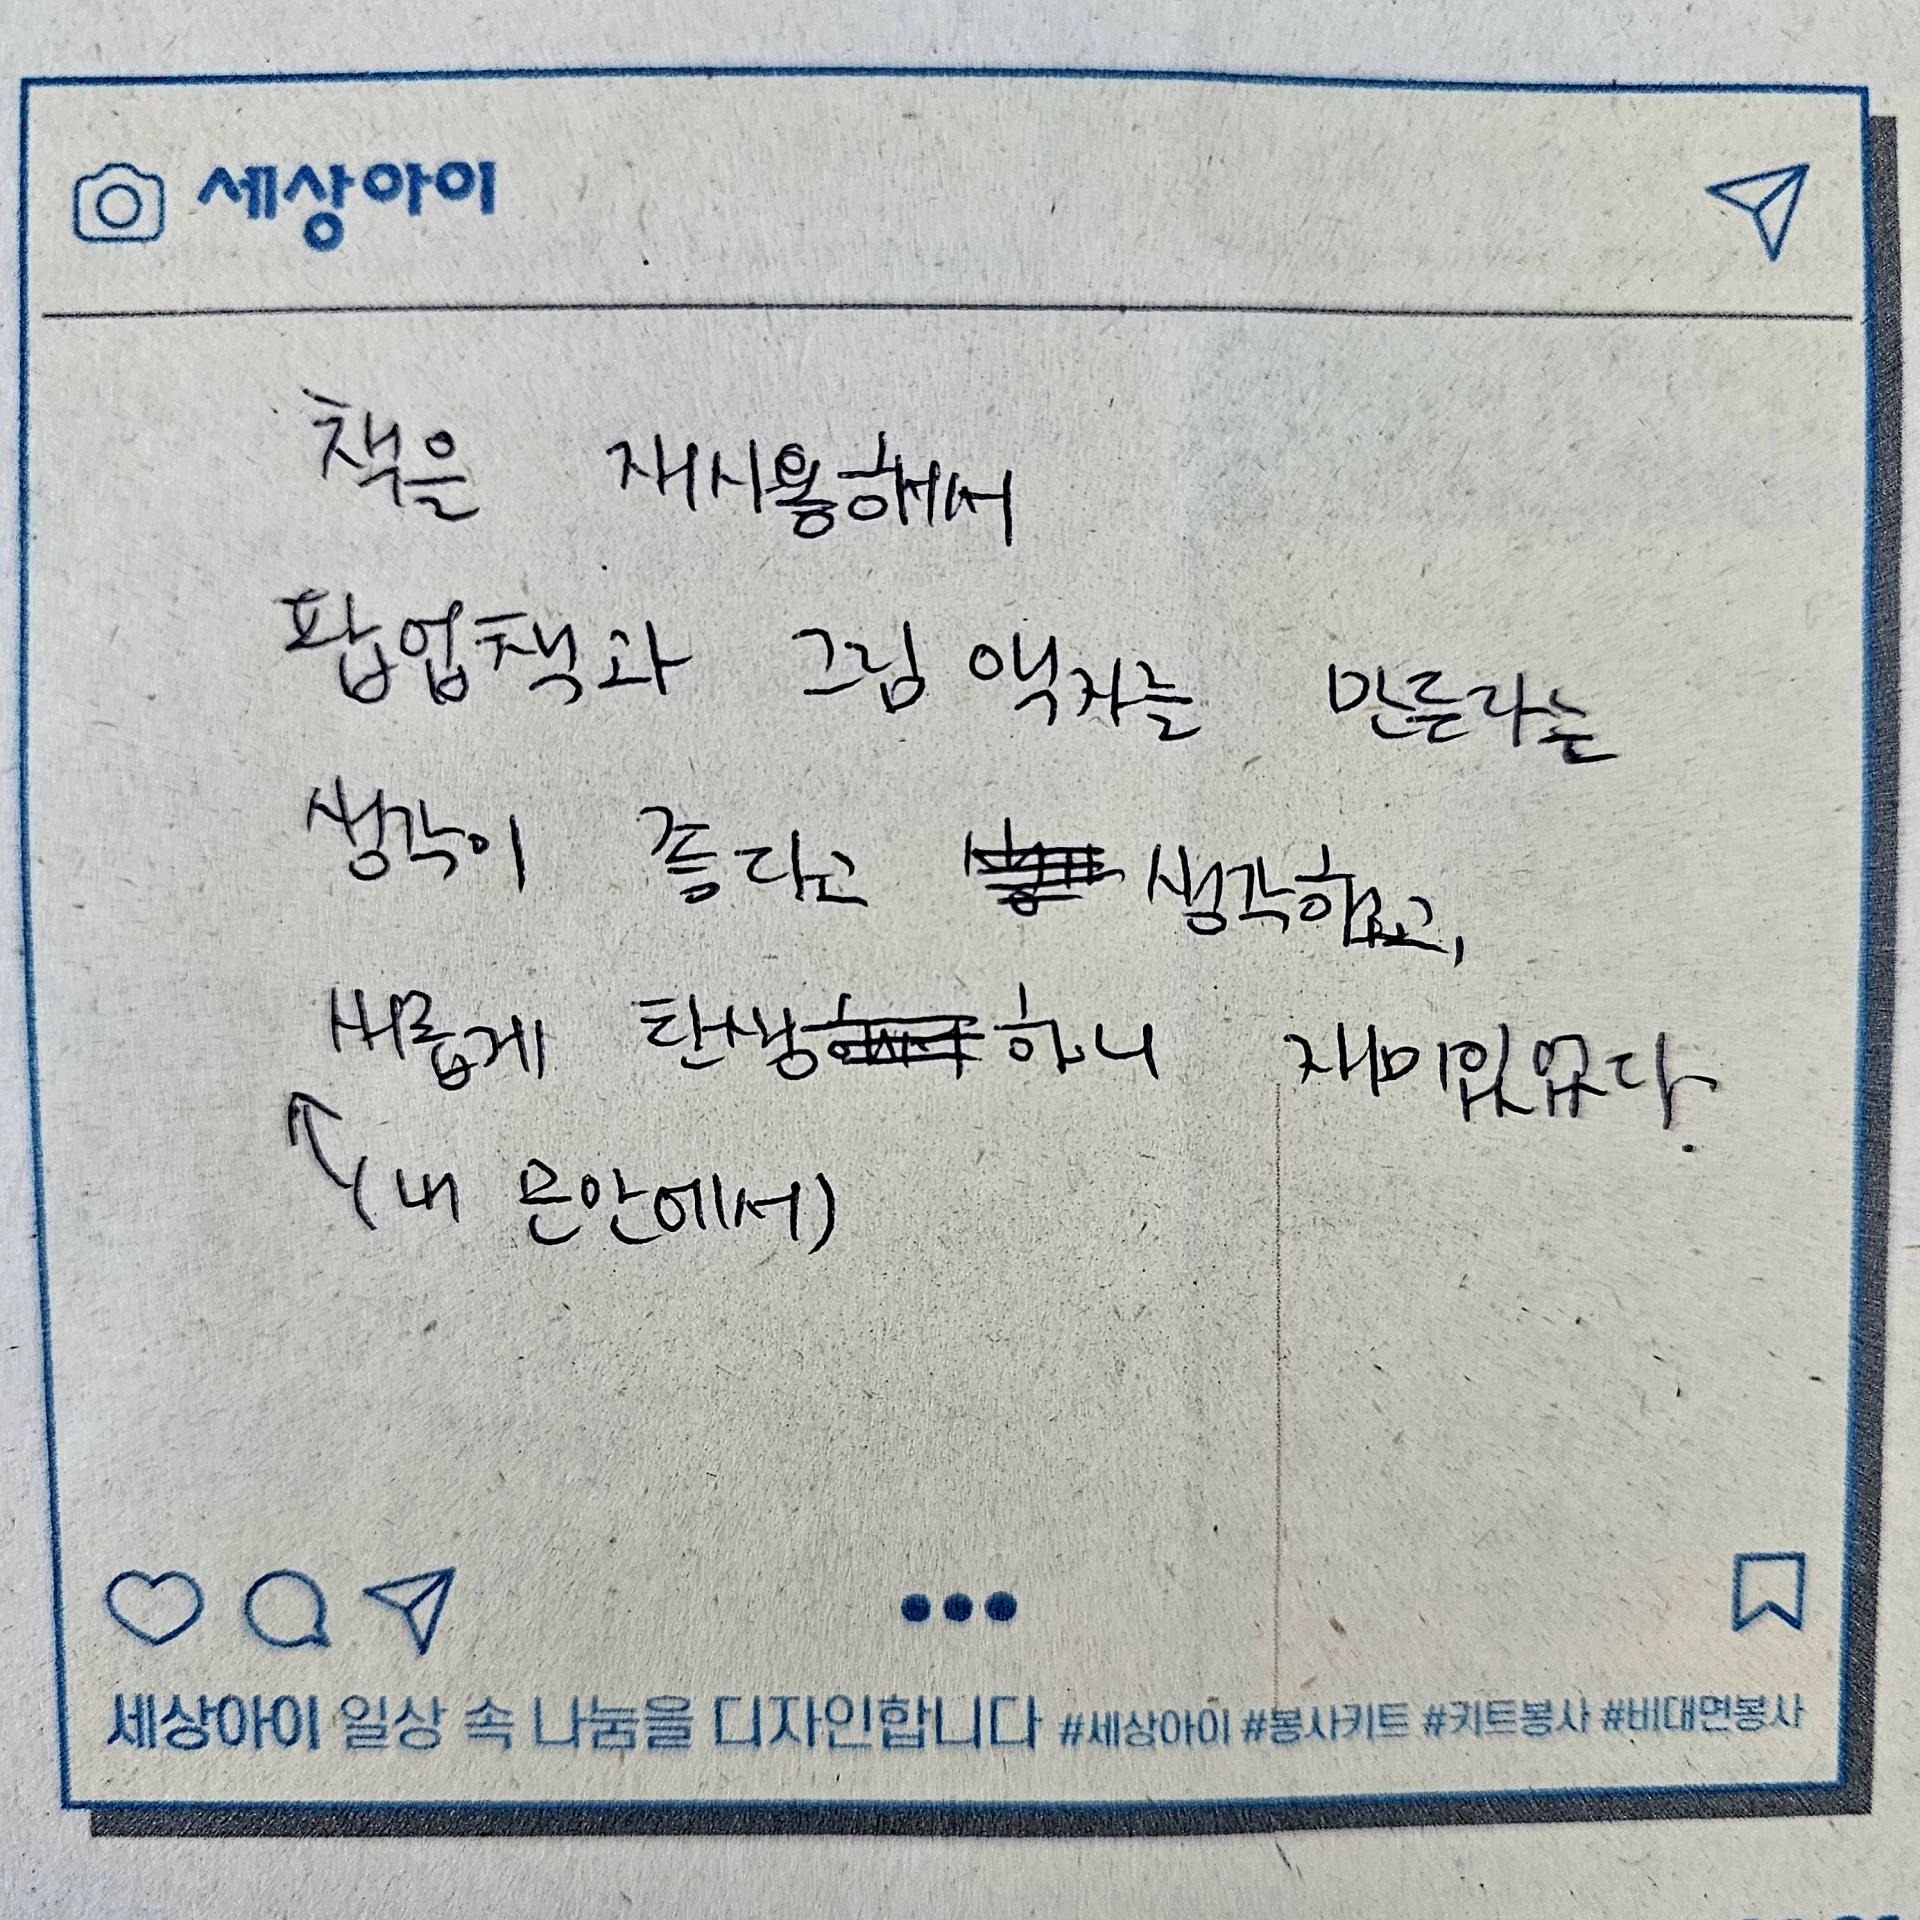 세상아이
책은 재사용해서
팝업책과 그림 액자를 만든라는
생각이 좋다고 생각하고,
새롭게 탄생하니 재미있었다.
(내 문안에서)
세상아이 일상 속 나눔을 디자인합니다 #세상아이 #봉사키트 #키트봉사 #비대면봉사